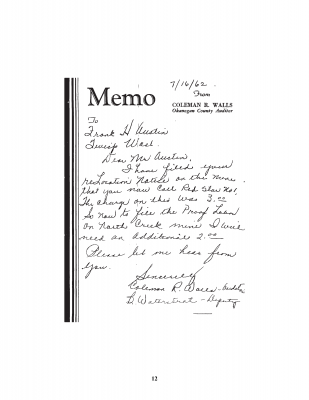 7/16/62
Memo
From
COLEMAN R. WALLS
Okanogan County Auditor
To
Frank H Austin
Twisp Wash.
Dear Mr Austin,
I have filed your
relocation Notice on the mine
that you now Call Red Star No 1.
The charge on this was 3.00
So now to file the Proof Labor
on North Creek mine I will
need an additional 2.00
Please let me hear from
you.
Sincerely
Coleman R. Walls - Auditor
B. Waterstrat - Deputy
12